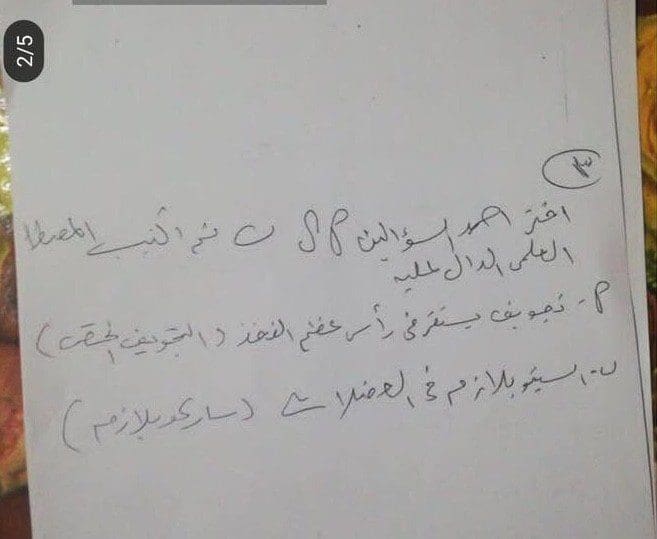 2/5
٣
اختر احد السؤالين أ أو ب ثم اكتب المصطلح
العلمى الدال عليه
أ - تجويف يستقر فى رأس عظم الفخذ (التجويف الحقى)
ب - السيتوبلازم فى العضلات (ساركوبلازم)